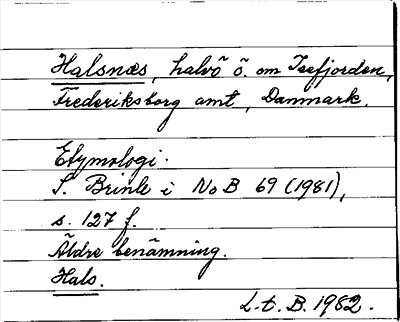 Halsnæs, halvö ö. om Isefjorden,
Frederiksborg amt, Danmark.
Etymologi.
S. Brink i NoB 69 (1981),
s. 127 f.
Äldre benämning.
Hals.
L.t. B. 1982.